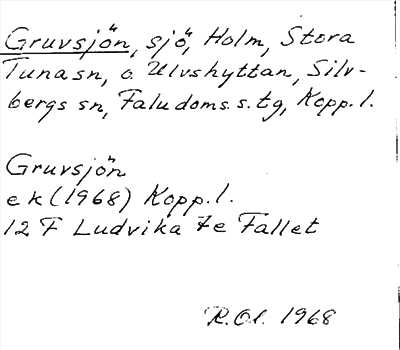 Gruvsjön, sjö, Holm, Stora
Tuna sn, o. Ulvshyttan, Silv-
bergs sn, Faludoms.s.tg, Kopp.l.
Gruvsjön
ek (1968) Kopp.l.
12 F Ludvika 7e Fallet
R.Ol. 1968